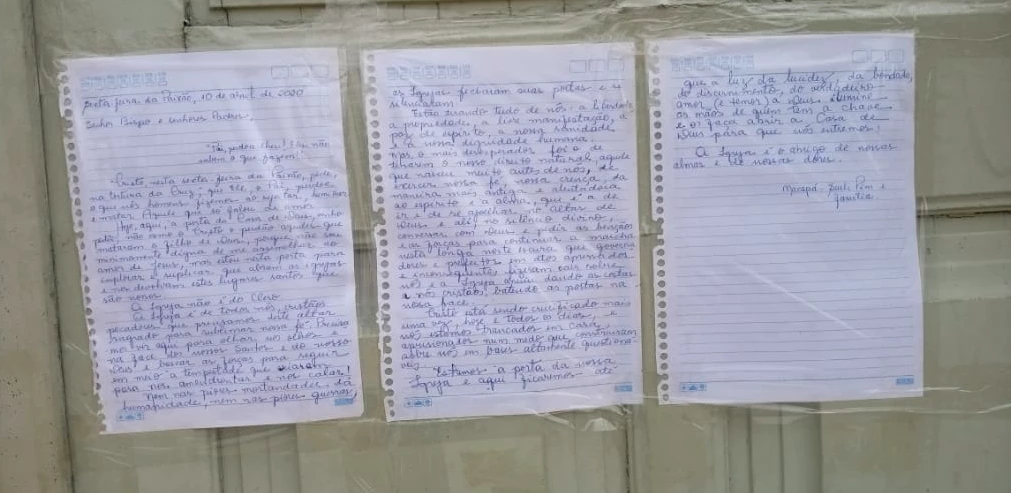 Sexta feira da Paixão, 10 de abril de 2020
Senhor Bispo e senhores Padres,
"Pai, perdoa-lhes! Eles não
sabem o que fazem!"
Cristo, nesta sexta-feira da Paixão, pede,
na tortura da Cruz, que Ele, o Pai, perdoe
o que nós homens fizemos ao
e matar Aquele que só falou de amor.
Hoje, aqui, a porta da Casa de Deus, minha
não como o Cristo o perdão aqueles que
mataram o filho de Deus, porque não sou
minimamente digna de assemelhar ao
amor de Jesus, mas estou nesta porta para
implorar e suplicar que abram as igrejas
e nos devolvam estes lugares santos que
são nossos.
A Igreja não é do Clero.
A Igreja é de todos nós, cristãos
pecadores que precisamos deste altar
sagrado para sublimar nossa fé. Precisa
mos vir aqui para olhar nos olhos
na face dos nossos Santos e do nosso
Deus e buscar as forças para seguir
em meio a tempestade que
para nos amedrontar e nos calar!
Nem nas piores mortandades da
humanidade, nem nas piores guerras,
as Igrejas fecharam suas portas e se
silenciaram.
Estão tirando tudo de nós: a liberdade,
a propriedade, a livre manifestação, a
paz de espírito, a nossa sanidade
e a nossa dignidade humana.
Mas, o mais desesperador foi o de
tirarem o nosso direito natural, aquele
que nasceu muito antes de nós, de
exercer nossa fé, nossa crença, da
maneira mais antiga e
ao espírito e a alma, que é a de
ir e de se ajoelhar no altar de
Deus e ali, no silêncio divino,
conversar com Deus e pedir as bençãos
e as forças para continuar a marcha
nesta longa noite escura que governa
dores e prefeitos em atos apressados
e inconsequentes fizeram cair sobre
nós e a Igreja anuiu dando as costas
a nós cristãos, batendo as portas na
nossa face.
Cristo está sendo crucificado mais
uma vez, hoje e todos os dias, e
nós estamos trancados em casa,
aprisionados num medo que construíram
sobre nós em bases altamente questioná-
veis.
Estamos a porta da nossa
Igreja e aqui ficaremos até
que a luz da lucidez, da bondade,
do discernimento, do verdadeiro
amor (e temor) a Deus ilumine
as mãos de quem tem a chave
e o faça abrir a Casa de
Deus para que nós entremos!
A Igreja é o abrigo de nossas
almas e de nossas dores.
e
família